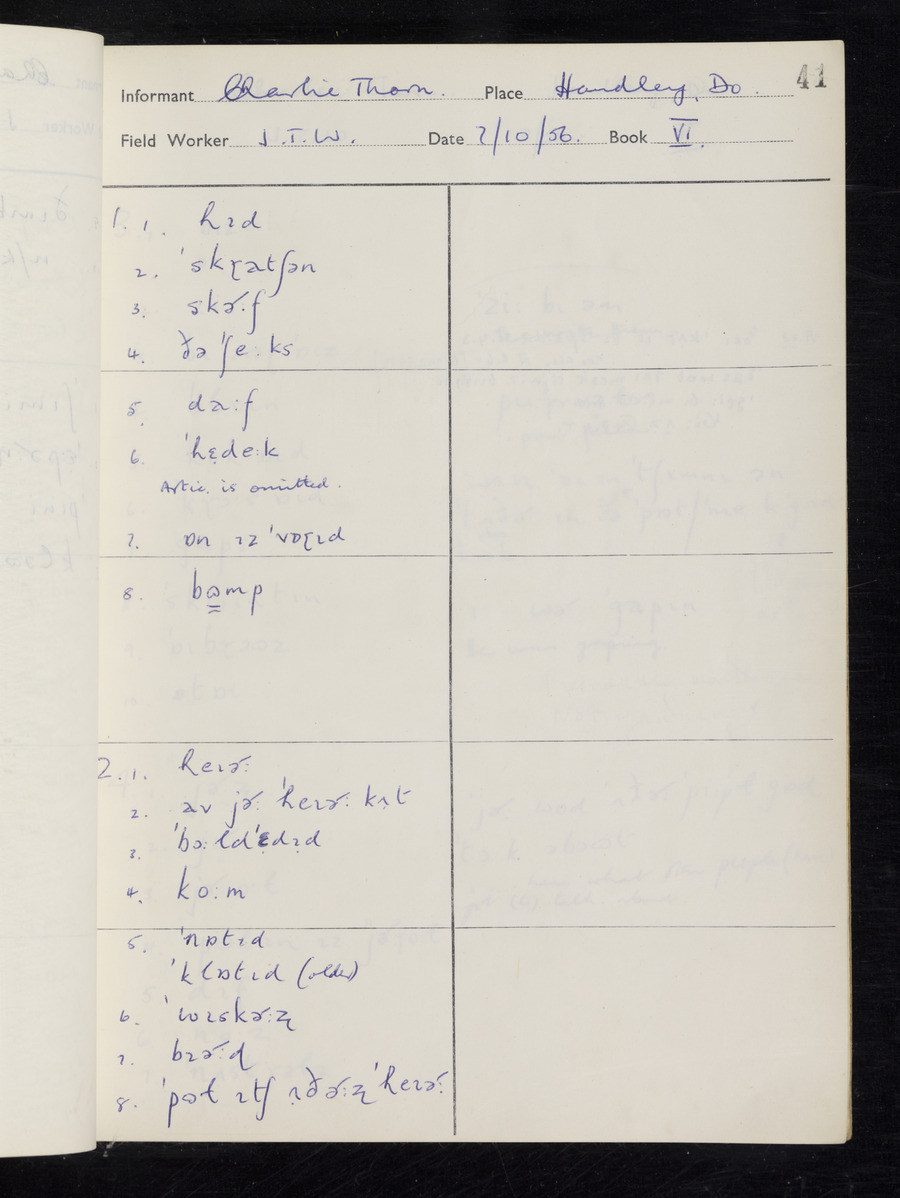 41
Informant Charlie Thorn. Place Handley, Do.
Field Worker J.T.W. Date 7/10/56. Book VI.
1. 1. hɪd
2. ˈskɽatʃən
3. skɚːf
4. ðə ˈʃeːks
5. dɛːf
6. ˈhɛ̣deːk
Artic. is omitted.
7. ɒn ɪz ˈvɒɽɪd
8. bɷ̳mp
2. 1. heɪɚː
2. əv jɚː ˈheɪɚː kɪ̣t
3. ˈbɔːldˈɛdɪd
4. koːm
5. ˈnɒtɪd
ˈklɒtɪd (older)
6. ˈwɪskɚːz̢
7. bɪɚːd
8. ˈpɷt ɪtʃ ɪ̣ðɚːz̢ ˈheɪɚː